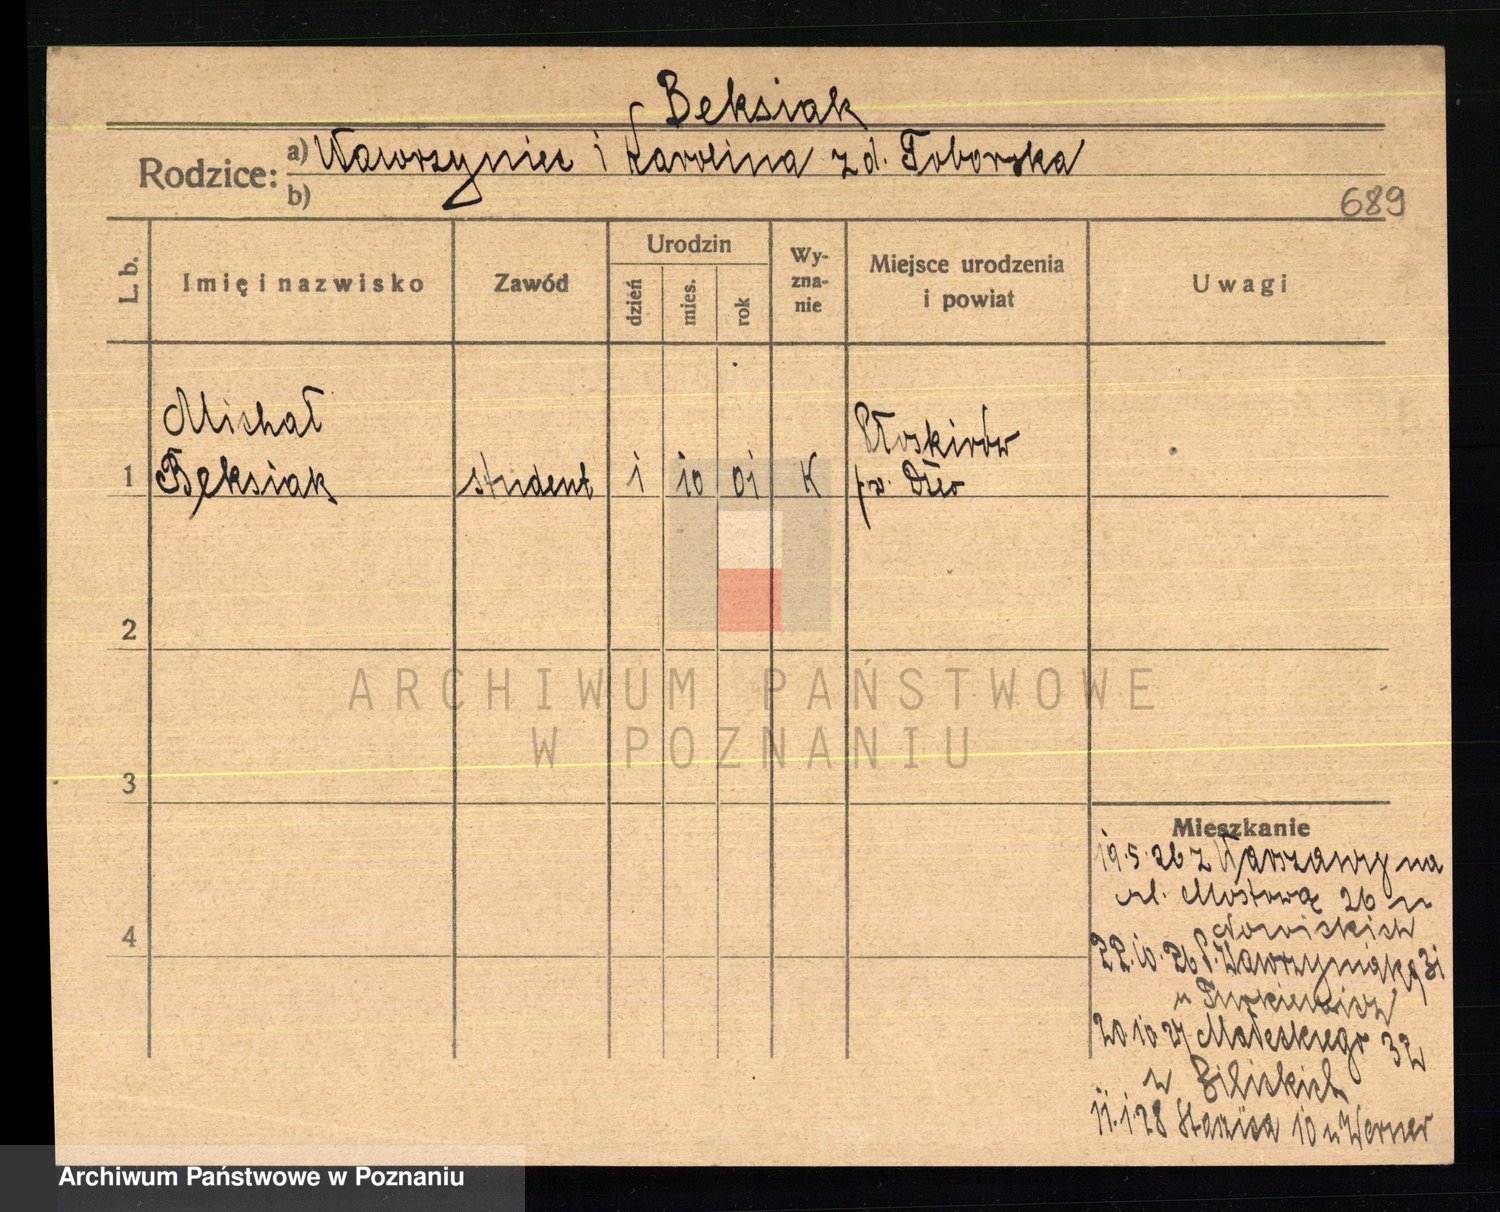 Beksiak
Rodzice: a) Wawrzyniec i Karolina z d. Toborska
b)
689
L. b. Imię i nazwisko Zawód Urodzin dzień mies. rok Wy-zna-nie Miejsce urodzenia i powiat Uwagi
Michał Płoskirów
1 Beksiak student 1 10 01 K pw.
2
3
4
Mieszkanie
19.5.26 z Warszawy na
ul. Mostową 26 u
Nowickich
22.10.26 Wawrzyniaka 31
u
20.10.27 Małeckiego 32
u Bilickich
11.1.28 Staszica 10 u Werner
ARCHIWUM PAŃSTWOWE
W POZNANIU
Archiwum Państwowe w Poznaniu